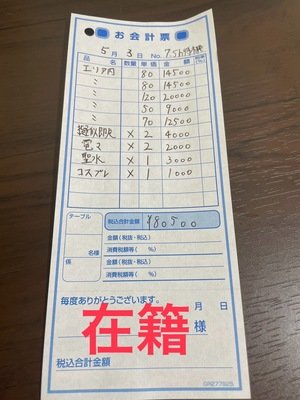 お会計票
5月 3日 No.
品 名 数量 単価 金 額
エリア内 80 14500
〃 80 14500
〃 120 20000
〃 50 9000
〃 70 12500
×2 4000
電マ ×2 2000
聖水 ×1 3000
コスプレ ×1 1000
テーブル 税込合計金額 ¥80500
金額(税抜・税込)
名様 消費税額等( %)
係 金額(税抜・税込)
消費税額等( %)
毎度ありがとうございます。
月 日
在籍 様
税込合計金額